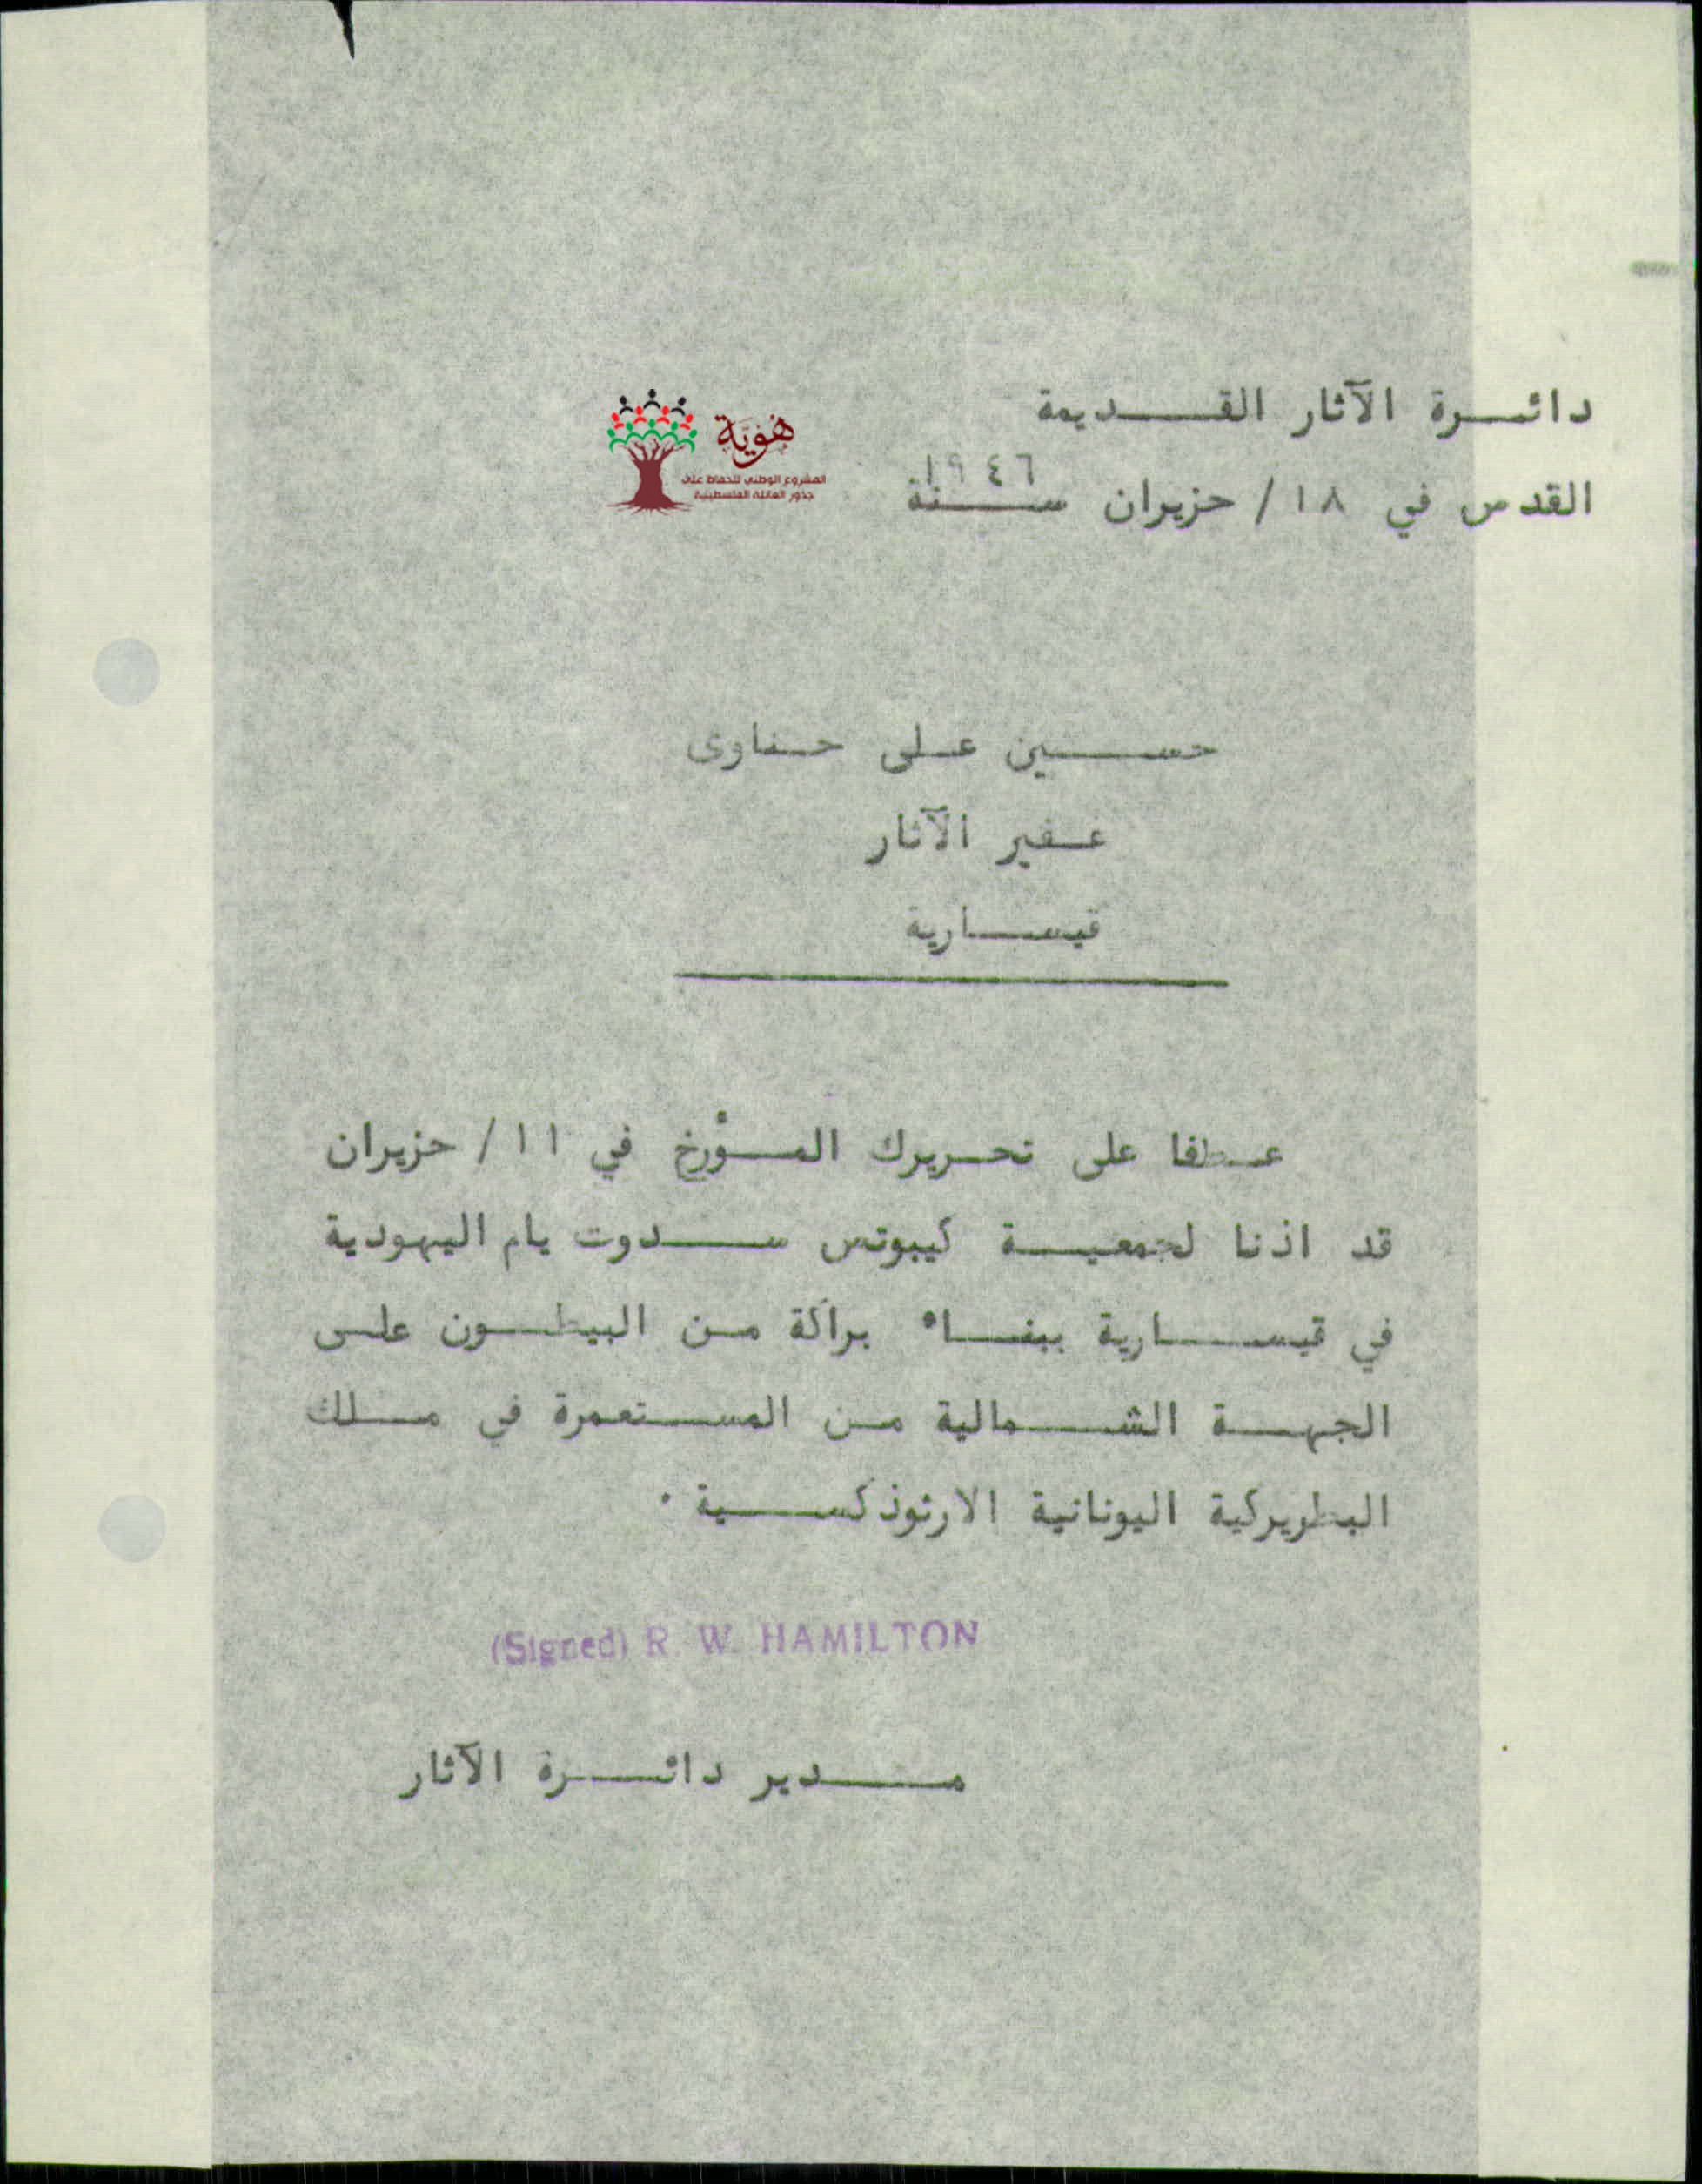 دائرة الآثار القديمة
القدس في ١٨/ حزيران سنة ١٩٤٦
هُويَّة
المشروع الوطني للحفاظ على
جذور العائلة الفلسطينية
حسين على حنفاوى
غفير الآثار
قيسارية
عطفا على تحريرك المؤرخ في ١١/ حزيران
قد اذنا لجمعية كيبوتس سدوت يام اليهودية
في قيسارية ببناء براكة من البيطون على
الجهة الشمالية من المستعمرة في ملك
البطريركية اليونانية الارثوذكسية ٠
(Signed) R. W. HAMILTON
مدير دائرة الآثار